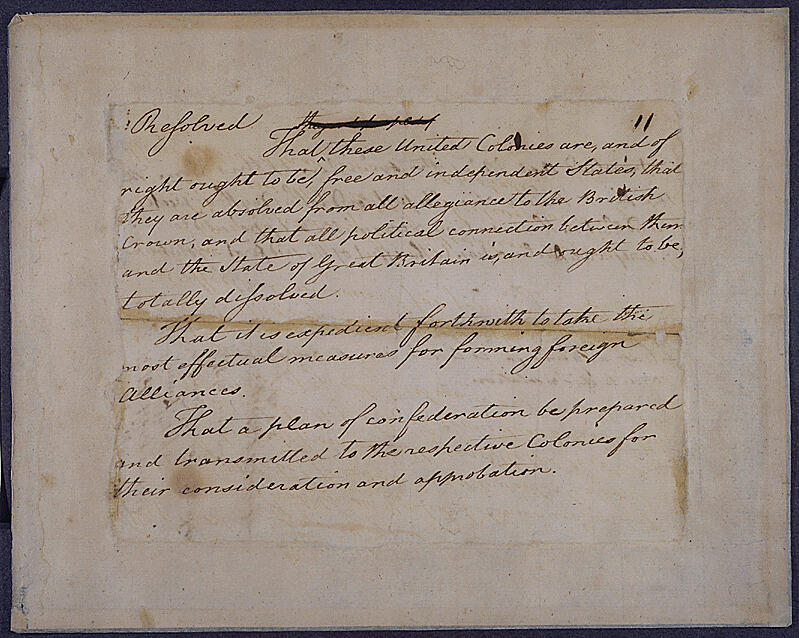 Resolved 11
That these United Colonies are, and of
right ought to be, free and independent States, that
they are absolved from all allegiance to the British
Crown, and that all political connection between them
and the State of Great Britain is, and ought to be,
totally dissolved.
That it is expedient forthwith to take the
most effectual measures for forming foreign
Alliances.
That a plan of confederation be prepared
and transmitted to the respective Colonies for
their consideration and approbation.